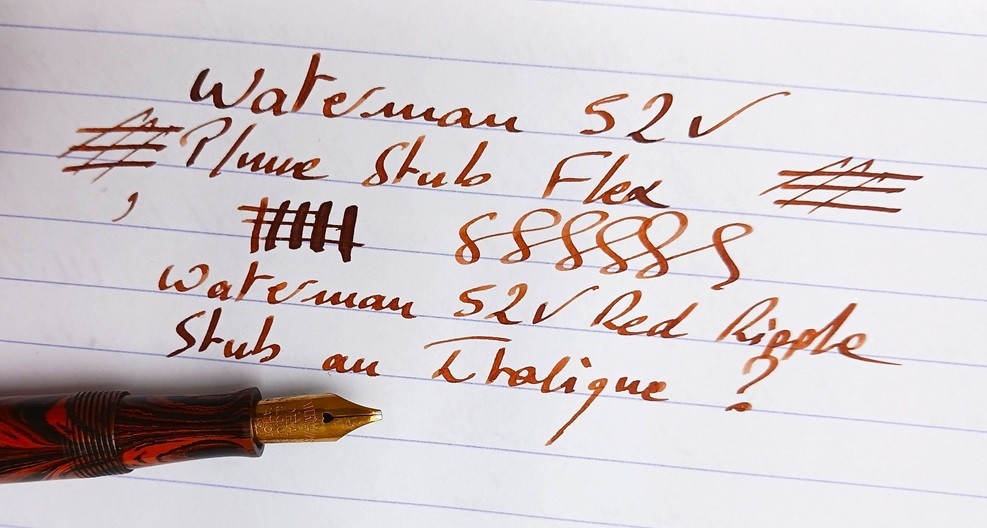 Waterman 52V
Plume Stub Flex
Waterman 52V Red Ripple
Stub au Italique ?